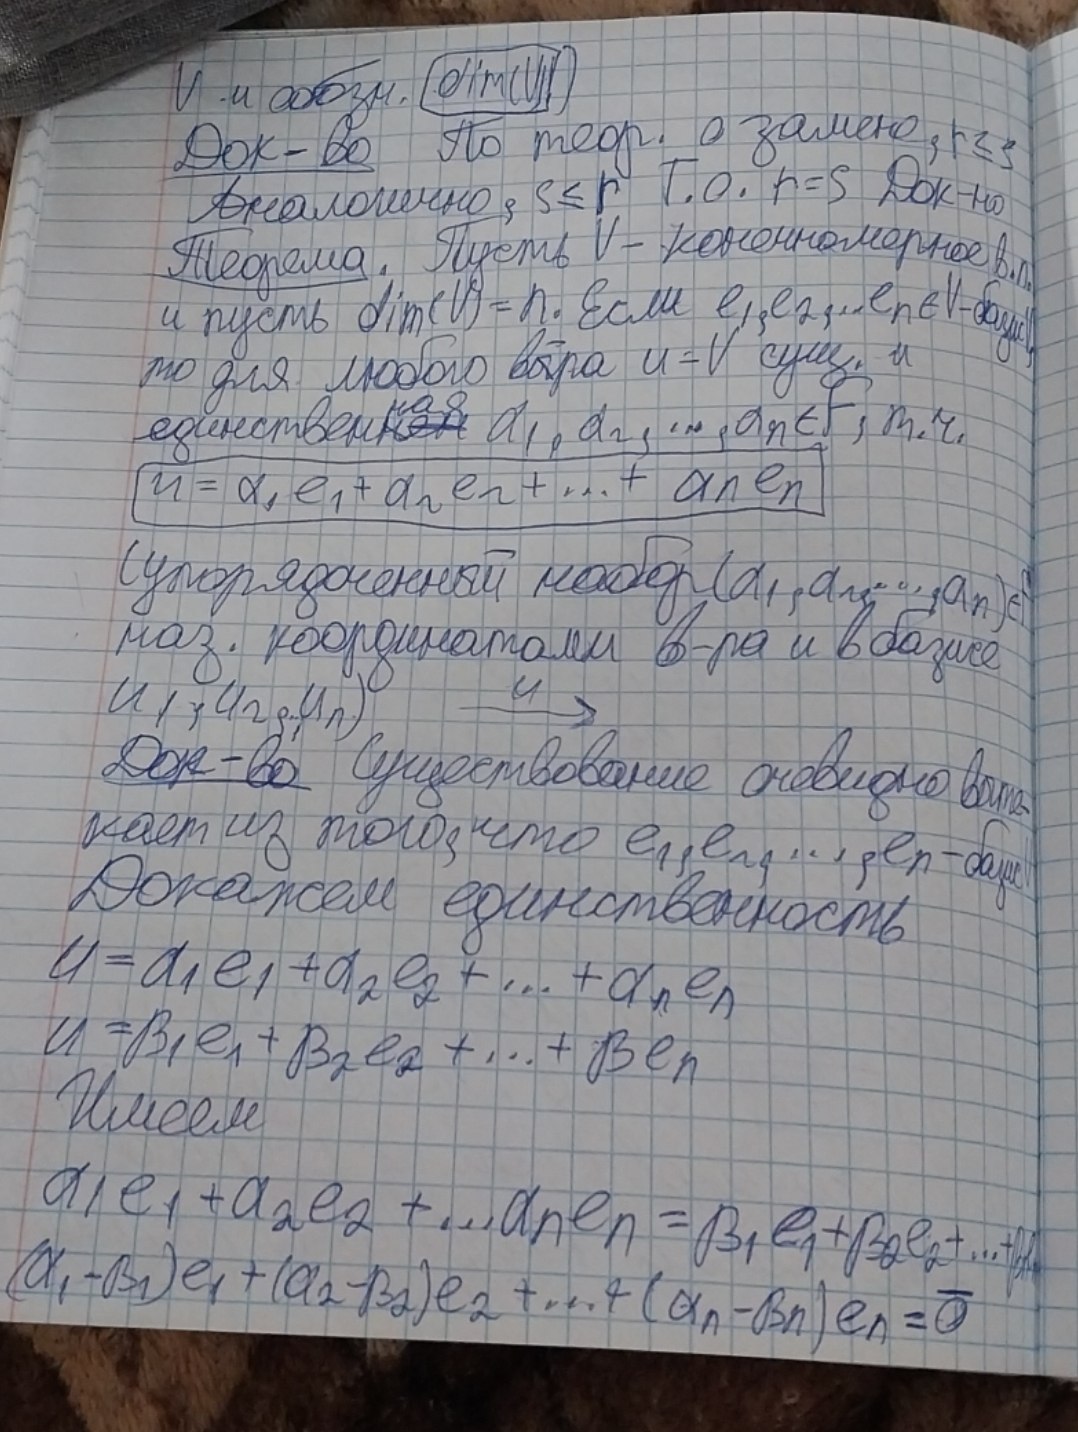 V и обозн. dim(V)
Док-во По теор. о замене, r ≤ s
Аналогично, s ≤ r Т.о. r = s Док-но
Теорема. Пусть V – конечномерное в.п.
и пусть dim(V) = n. Если e₁, e₂, ... eₙ ∈ V – базис V,
то для любого в-ра u = V сущ. и
единственны α₁, α₂, ..., αₙ ∈ F, т.ч.
u = α₁e₁ + α₂e₂ + ... + αₙeₙ
(упорядоченный набор (α₁, α₂, ..., αₙ) ∈
наз. координатами в-ра u в базисе
u₁, u₂, uₙ) u
Док-во Существование очевидно выте-
кает из того, что e₁, e₂, ..., eₙ – базис V
Докажем единственность
u = α₁e₁ + α₂e₂ + ... + αₙeₙ
u = β₁e₁ + β₂e₂ + ... + βeₙ
Имеем
α₁e₁ + α₂e₂ + ... αₙeₙ = β₁e₁ + β₂e₂ + ... +
(α₁ - β₁)e₁ + (α₂ - β₂)e₂ + ... + (αₙ - βₙ)eₙ = 0̅